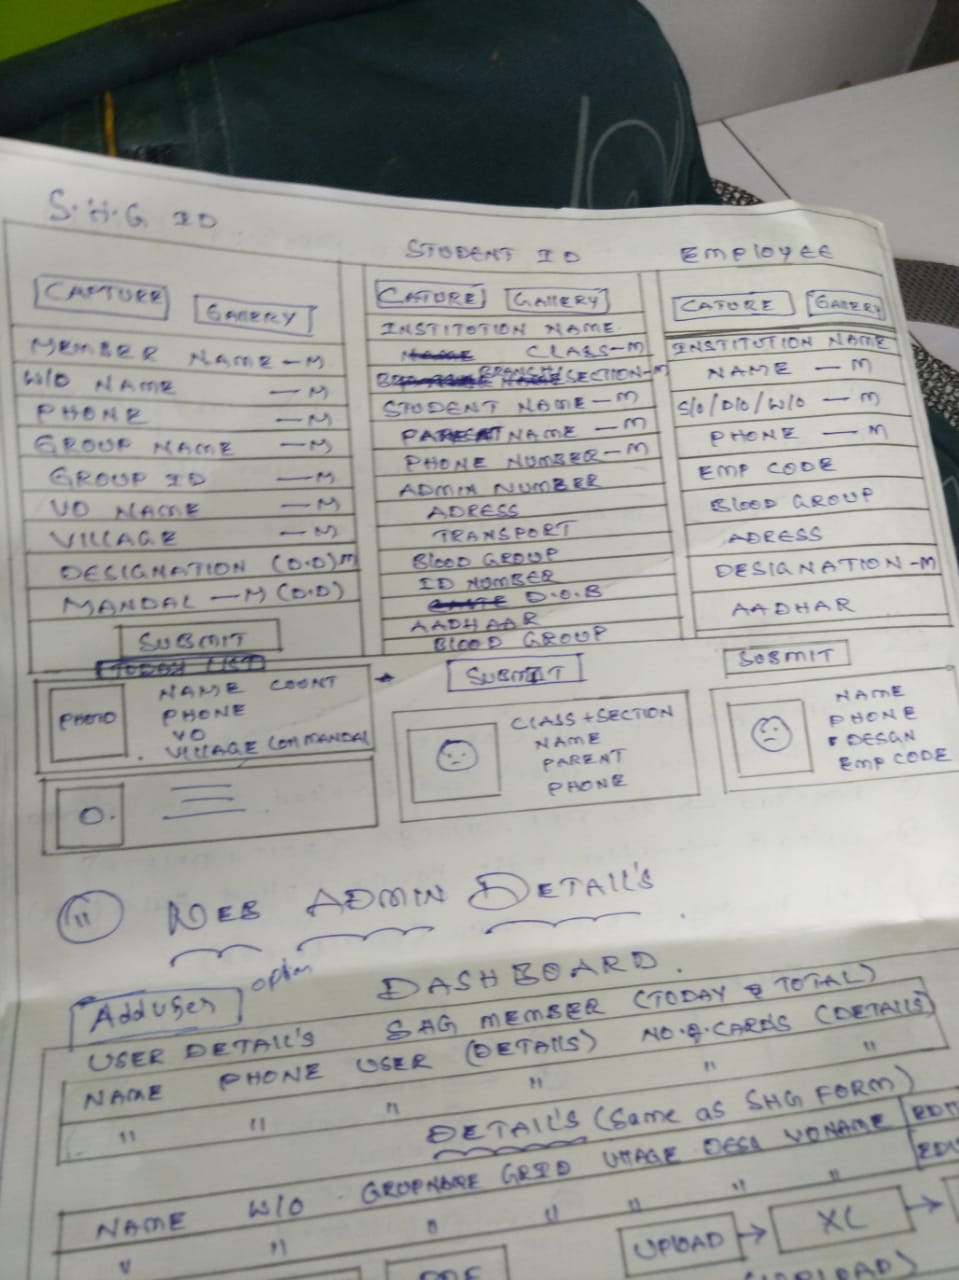 S.H.G ID
CAPTURE GALLERY
MEMBER NAME - M
W/O NAME - M
PHONE - M
GROUP NAME - M
GROUP ID - M
VO NAME - M
VILLAGE - M
DESIGNATION (D.D) M
MANDAL - M (D.D)
SUBMIT
TODAY LIST
PHOTO
NAME COUNT
PHONE
VO
VILLAGE MANDAL
STUDENT ID
CATURE GALLERY
INSTITUTION NAME
CLASS-M
SECTION-M
STUDENT NAME - M
PARENT NAME - M
PHONE NUMBER - M
ADMIN NUMBER
ADRESS
TRANSPORT
Blood GROUP
ID NUMBER
D.O.B
AADHAAR
BLOOD GROUP
SUBMIT
CLASS + SECTION
NAME
PARENT
PHONE
EMPloyEE
CATURE GALLERY
INSTITUTION NAME
NAME - M
S/O / D/O / W/O - M
PHONE - M
EMP CODE
Blood GROUP
ADRESS
DESIGNATION - M
AADHAR
SUBMIT
NAME
PHONE
DESGN
EMP CODE
11 WEB ADMIN DETAIL'S
Add User option DASHBOARD.
USER DETAIL'S SHG MEMBER (TODAY & TOTAL)
NAME PHONE USER (DETAILS) NO.&.CARDS (DETAILS)
" " " " " "
DETAIL'S (Same as SHG FORM)
NAME W/O GROUPNAME GRID VILLAGE DESI VONAME EDIT
" " " " " " "
UPLOAD → XL →
PDF